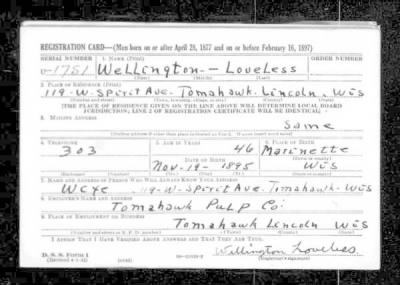 REGISTRATION CARD—(Men born on or after April 28, 1877 and on or before February 16, 1897)
SERIAL NUMBER 1. NAME (Print) ORDER NUMBER
U-1751 Wellington — Loveless
(First) (Middle) (Last)
2. PLACE OF RESIDENCE (Print)
119-W-Spirit Ave. Tomahawk-Lincoln. Wis
(Number and street) (Town, township, village, or city) (County) (State)
[THE PLACE OF RESIDENCE GIVEN ON THE LINE ABOVE WILL DETERMINE LOCAL BOARD
JURISDICTION; LINE 2 OF REGISTRATION CERTIFICATE WILL BE IDENTICAL]
3. MAILING ADDRESS
Same
[Mailing address if other than place indicated on line 2. If same insert word same]
4. TELEPHONE 5. AGE IN YEARS 6. PLACE OF BIRTH
303 46 Marinette
DATE OF BIRTH (Town or county)
Nov-19-1895 Wis
(Exchange) (Number) (Mo.) (Day) (Yr.) (State or country)
7. NAME AND ADDRESS OF PERSON WHO WILL ALWAYS KNOW YOUR ADDRESS
Wife 119-W-Spirit Ave. Tomahawk-Wis
8. EMPLOYER'S NAME AND ADDRESS
Tomahawk Pulp Co:
9. PLACE OF EMPLOYMENT OR BUSINESS
Tomahawk Lincoln Wis
(Number and street or R. F. D. number) (Town) (County) (State)
I AFFIRM THAT I HAVE VERIFIED ABOVE ANSWERS AND THAT THEY ARE TRUE.
D. S. S. Form 1
(Revised 4-1-42) (over) Wellington Loveless
(Registrant's signature)